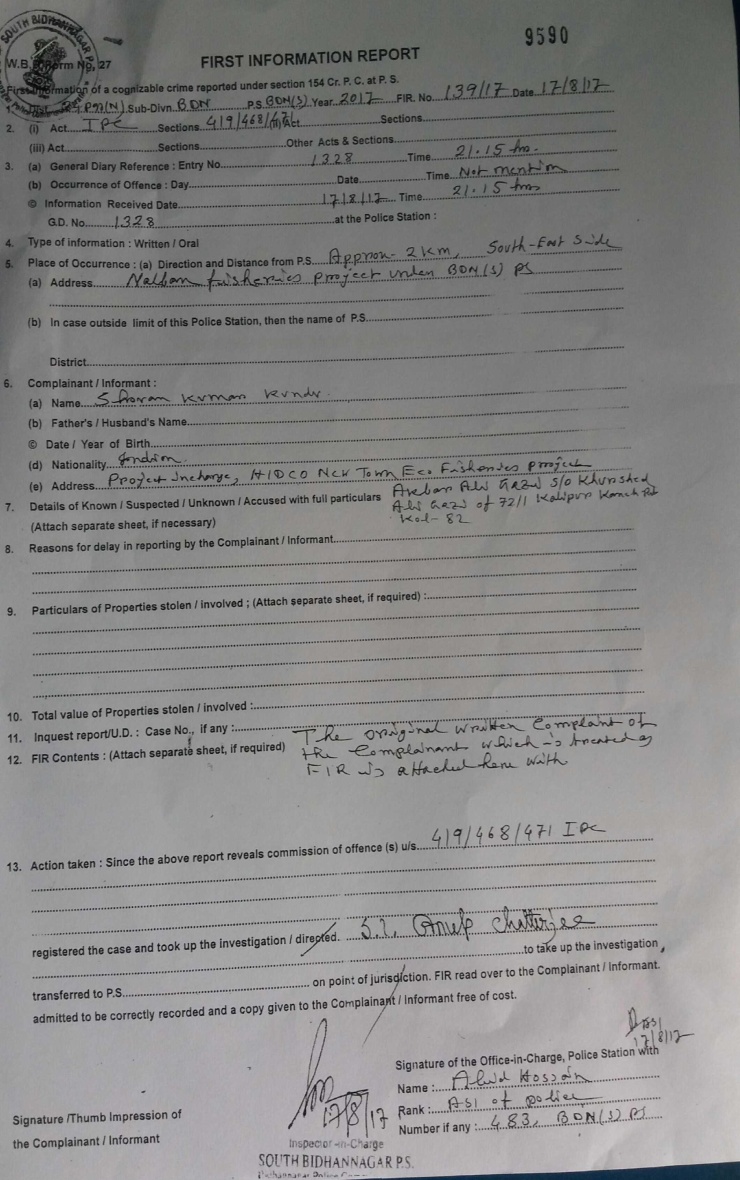 9590
SOUTH BIDHANNAGAR P.S.
W.B. Form No. 27
FIRST INFORMATION REPORT
First Information of a cognizable crime reported under section 154 Cr. P. C. at P. S.
1. Sub-Divn. BDN P.S. BDN(S) Year 2017 FIR. No. 139/17 Date 17/8/17
2. (i) Act IPC Sections 419/468/471 Act Sections
(iii) Act Sections Other Acts & Sections
3. (a) General Diary Reference : Entry No. 1328 Time 21.15 hrs.
(b) Occurrence of Offence : Day Date Time Not mention
© Information Received Date 17/8/17 Time 21.15 hrs
G.D. No. 1328 at the Police Station :
4. Type of information : Written / Oral
5. Place of Occurrence : (a) Direction and Distance from P.S. Approx- 2 Km, South-East Side
(a) Address Nalban fisheries project under BDN(S) PS
(b) In case outside limit of this Police Station, then the name of P.S.
District
6. Complainant / Informant :
(a) Name Kumar Kundu
(b) Father's / Husband's Name
© Date / Year of Birth
(d) Nationality Indian.
(e) Address Project Incharge, HIDCO New Town Eco Fisheries project
7. Details of Known / Suspected / Unknown / Accused with full particulars Ali Gazi s/o Khurshed
(Attach separate sheet, if necessary) Ali Gazi of 72/1 Kalipur Kancha Rd
Kol- 82
8. Reasons for delay in reporting by the Complainant / Informant
9. Particulars of Properties stolen / involved ; (Attach separate sheet, if required) :
10. Total value of Properties stolen / involved :
11. Inquest report/U.D. : Case No., if any :
12. FIR Contents : (Attach separate sheet, if required) The original written Complaint of
the Complainant which is treated as
FIR is attached here with
13. Action taken : Since the above report reveals commission of offence (s) u/s. 419/468/471 IPC
registered the case and took up the investigation / directed. S.I. Anup Chatterjee
to take up the investigation
transferred to P.S. on point of jurisdiction. FIR read over to the Complainant / Informant.
admitted to be correctly recorded and a copy given to the Complainant / Informant free of cost.
17/8/17
Signature of the Office-in-Charge, Police Station with
Name : Abid Hossain
Rank : ASI of police
Number if any : 483, BDN(S) PS
17/8/17
Signature /Thumb Impression of
the Complainant / Informant
Inspector-in-Charge
SOUTH BIDHANNAGAR P.S.